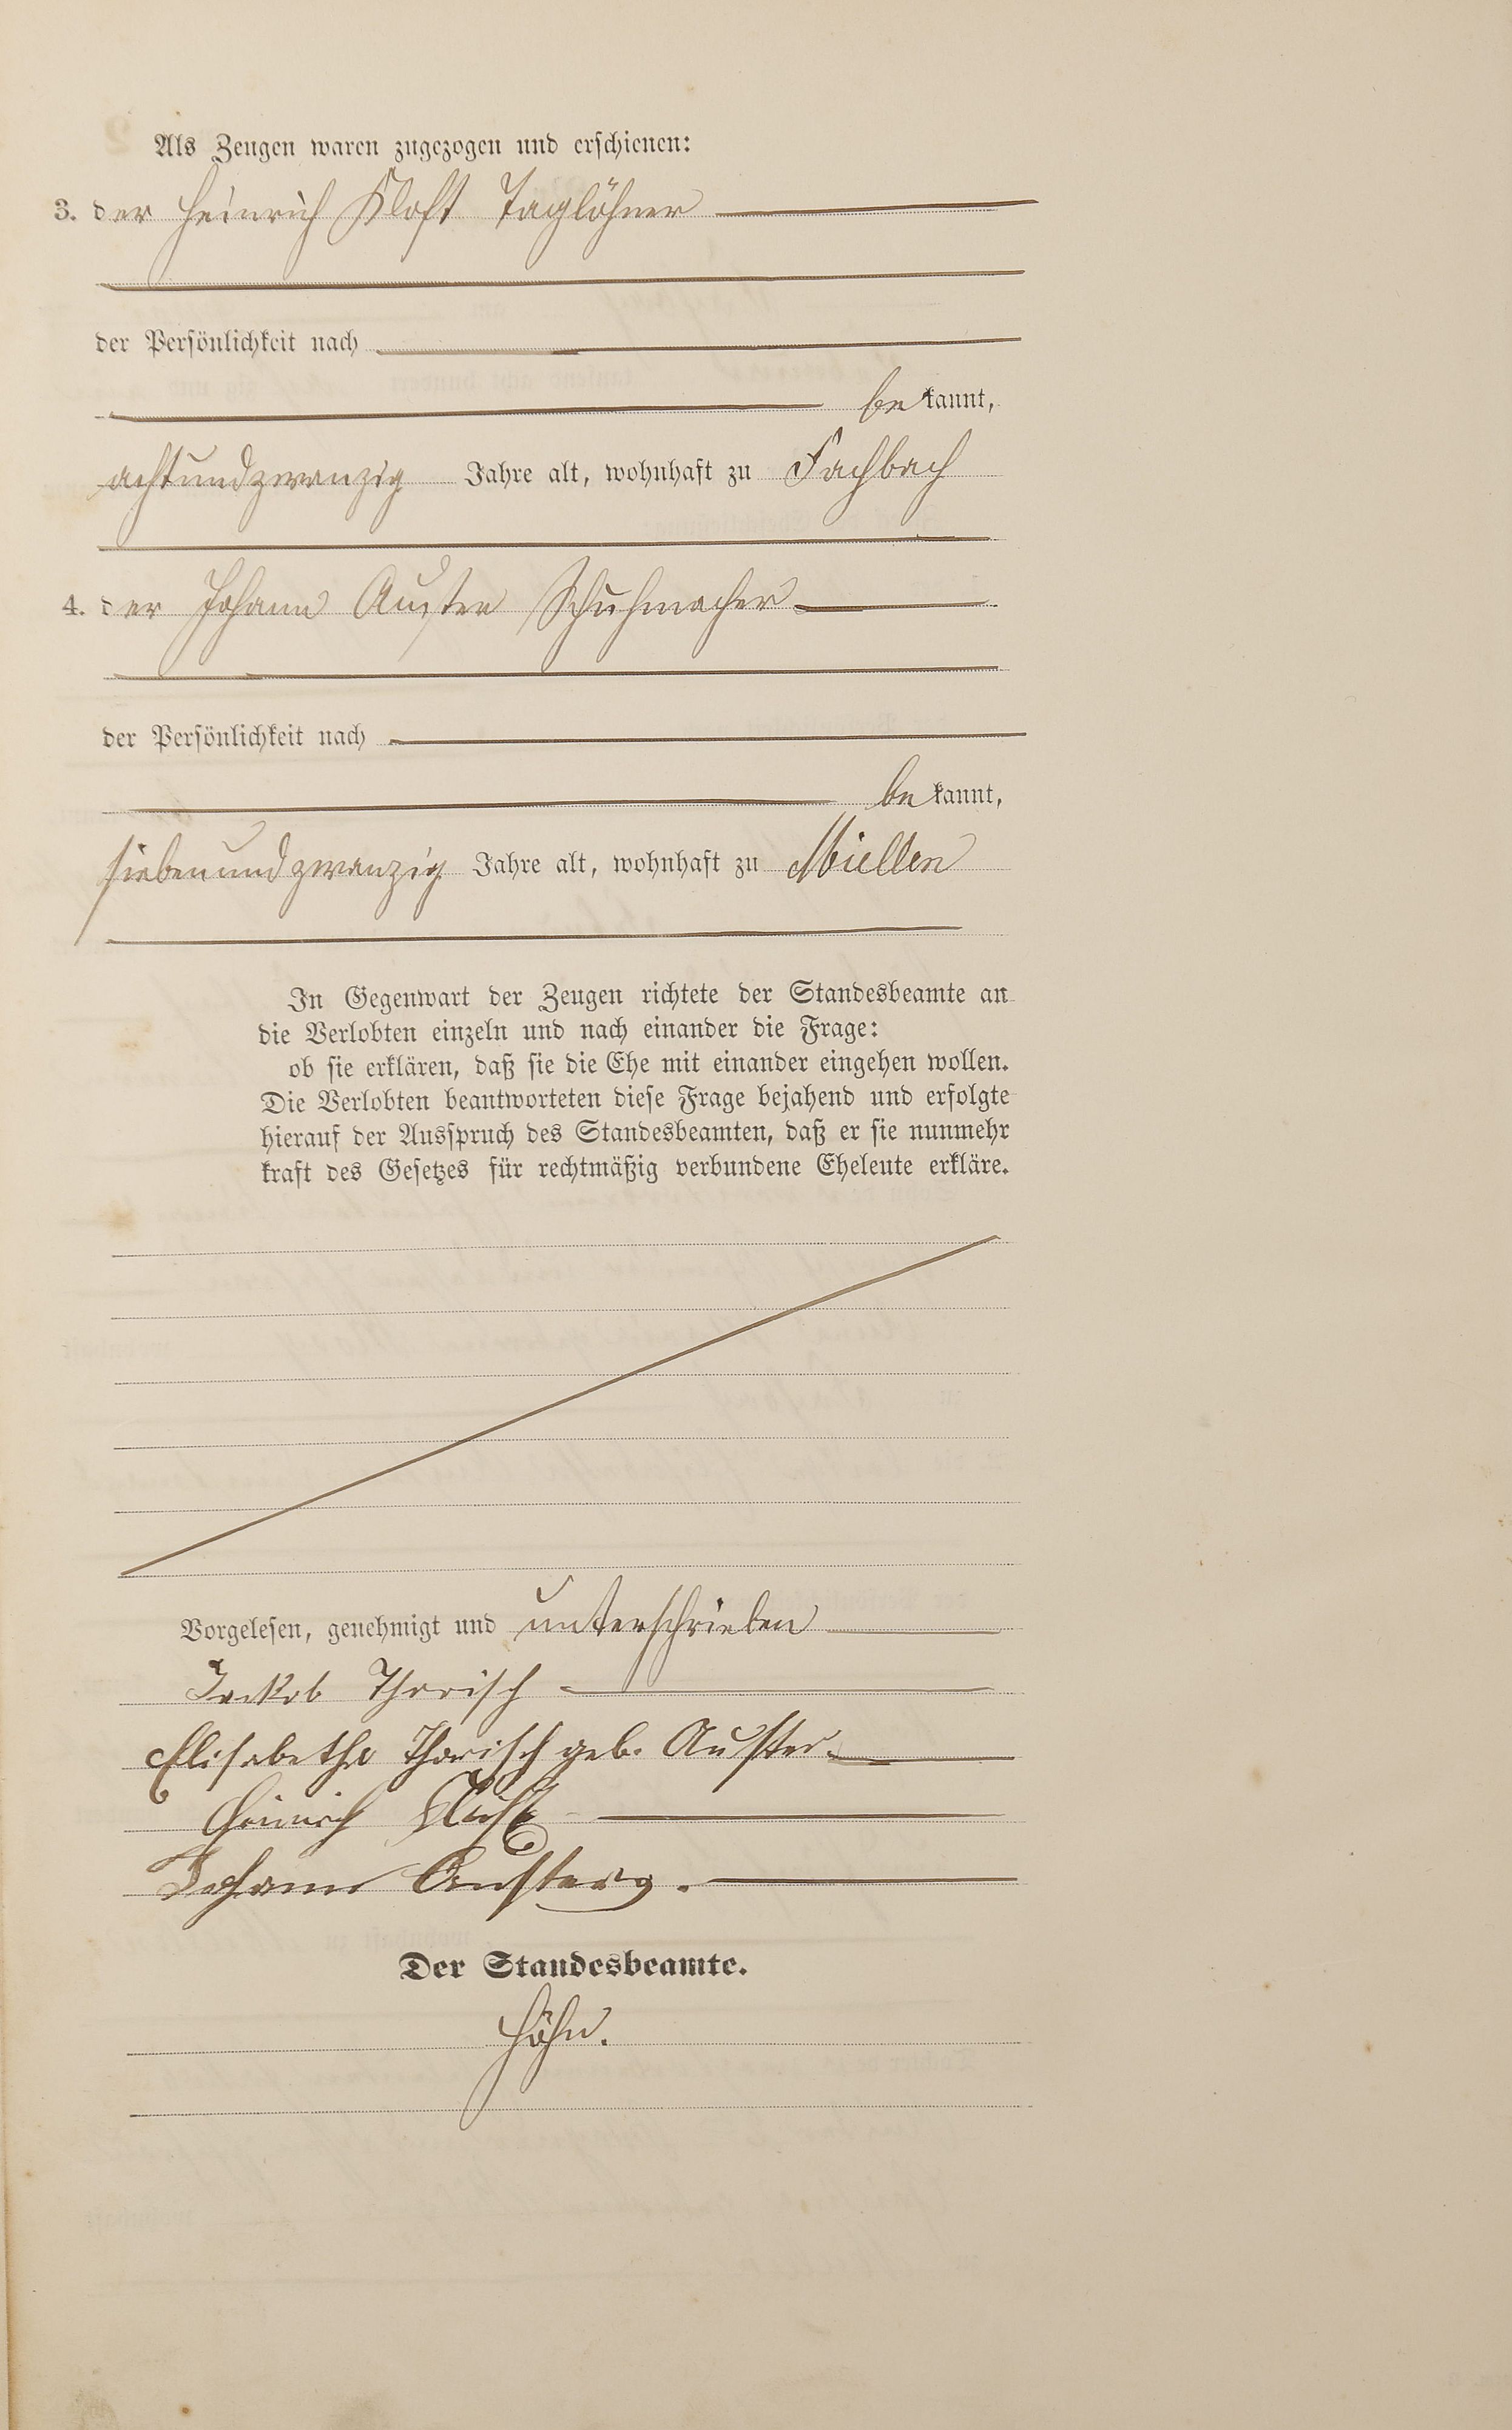 Als Zeugen waren zugezogen und erschienen:
3. der Heinrich Kloft Taglöhner
der Persönlichkeit nach
bekannt,
achtundzwanzig Jahre alt, wohnhaft zu Fachbach
4. der Johann Auster Schuhmacher
der Persönlichkeit nach
bekannt,
siebenundzwanzig Jahre alt, wohnhaft zu Miellen
In Gegenwart der Zeugen richtete der Standesbeamte an
die Verlobten einzeln und nach einander die Frage:
ob sie erklären, daß sie die Ehe mit einander eingehen wollen.
Die Verlobten beantworteten diese Frage bejahend und erfolgte
hierauf der Ausspruch des Standesbeamten, daß er sie nunmehr
kraft des Gesetzes für rechtmäßig verbundene Eheleute erkläre.
Vorgelesen, genehmigt und unterschrieben
Jackob Thorisch
Elisabetha Thorisch geb. Auster.
Heinrich Kloft
Johann Auster
Der Standesbeamte.
Höhn.